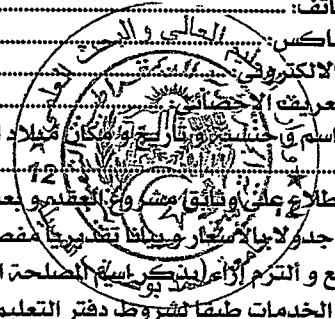 اتف:
ـاكس: العالي و البحث العلمي
الالكتروني:
عريف الاحصائي:
اسم و جنسية و تاريخ و مكان ميلاد ا
12
طلاع على وثائق مشروع العقد و بعد
جدولا بالأسعار و بيانا تقديريا مفص
ع و ألتزم إزاء (يذكر اسم المصلحة ا
الخدمات طبقا لشروط دفتر التعليم